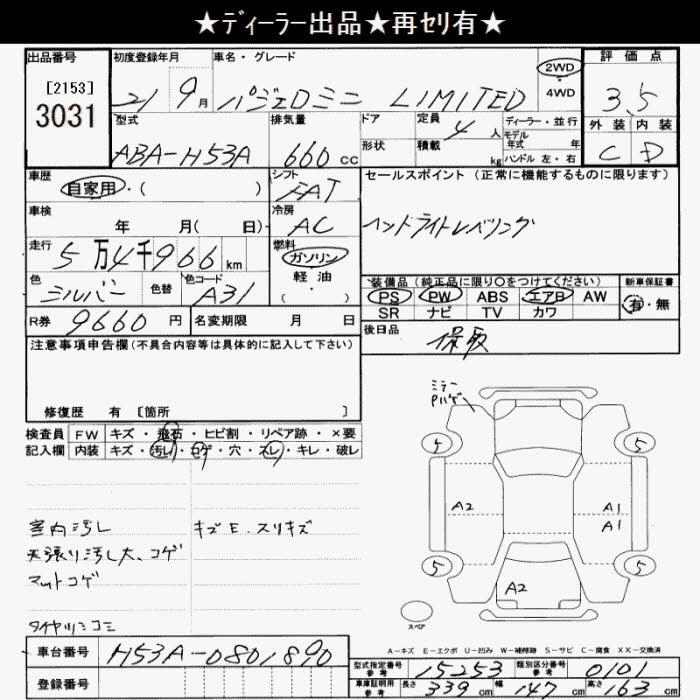 ★ディーラー出品★再セリ有★
出品番号 初度登録年月 車名・グレード 評価点
[2153] 2WD
3031 21 9月 パジェロミニ LIMITED 4WD 3.5
型式 排気量 ドア 定員 4人 ディーラー・並行 外装 内装
モデル年式 年
ABA-H53A 660cc 形状 積載 kg ハンドル 左・右 C D
車歴 シフト セールスポイント (正常に機能するものに限ります)
自家用・( ) FAT
車検 冷房 ヘッドライトレベリング
年 月( 日) AC
走行 燃料
5万4千966km ガソリン
色 色替 色コード 軽油 装備品(純正品に限り○をつけてください) 新車保証書
シルバー A31 (・ ) PS PW ABS エアB AW 有・無
R券 9660円 名変期限 月 日 SR ナビ TV カワ
注意事項申告欄(不具合内容等は具体的に記入して下さい) 後日品
保取
修復歴 有 [箇所 ]
ミラー
Pハゲ
検査員 FW キズ・飛石・ヒビ割・リペア跡・×要
記入欄 内装 キズ・汚レ・コゲ・穴・スレ・キレ・破レ
5 5
A2 A1
A1
室内汚レ キズE.スリキズ
天張り汚し大、コゲ
マットコゲ
5 5
A2
スペア
タイヤツミコミ
A-キズ E-エクボ U-凹み W-補修跡 S-サビ C-腐食 XX-交換済
車台番号 H53A-0801890
型式指定番号 参考 15253 類別区分番号 参考 0101
登録番号
車庫証明用 参考 長さ 339cm 幅 147cm 高さ 163cm